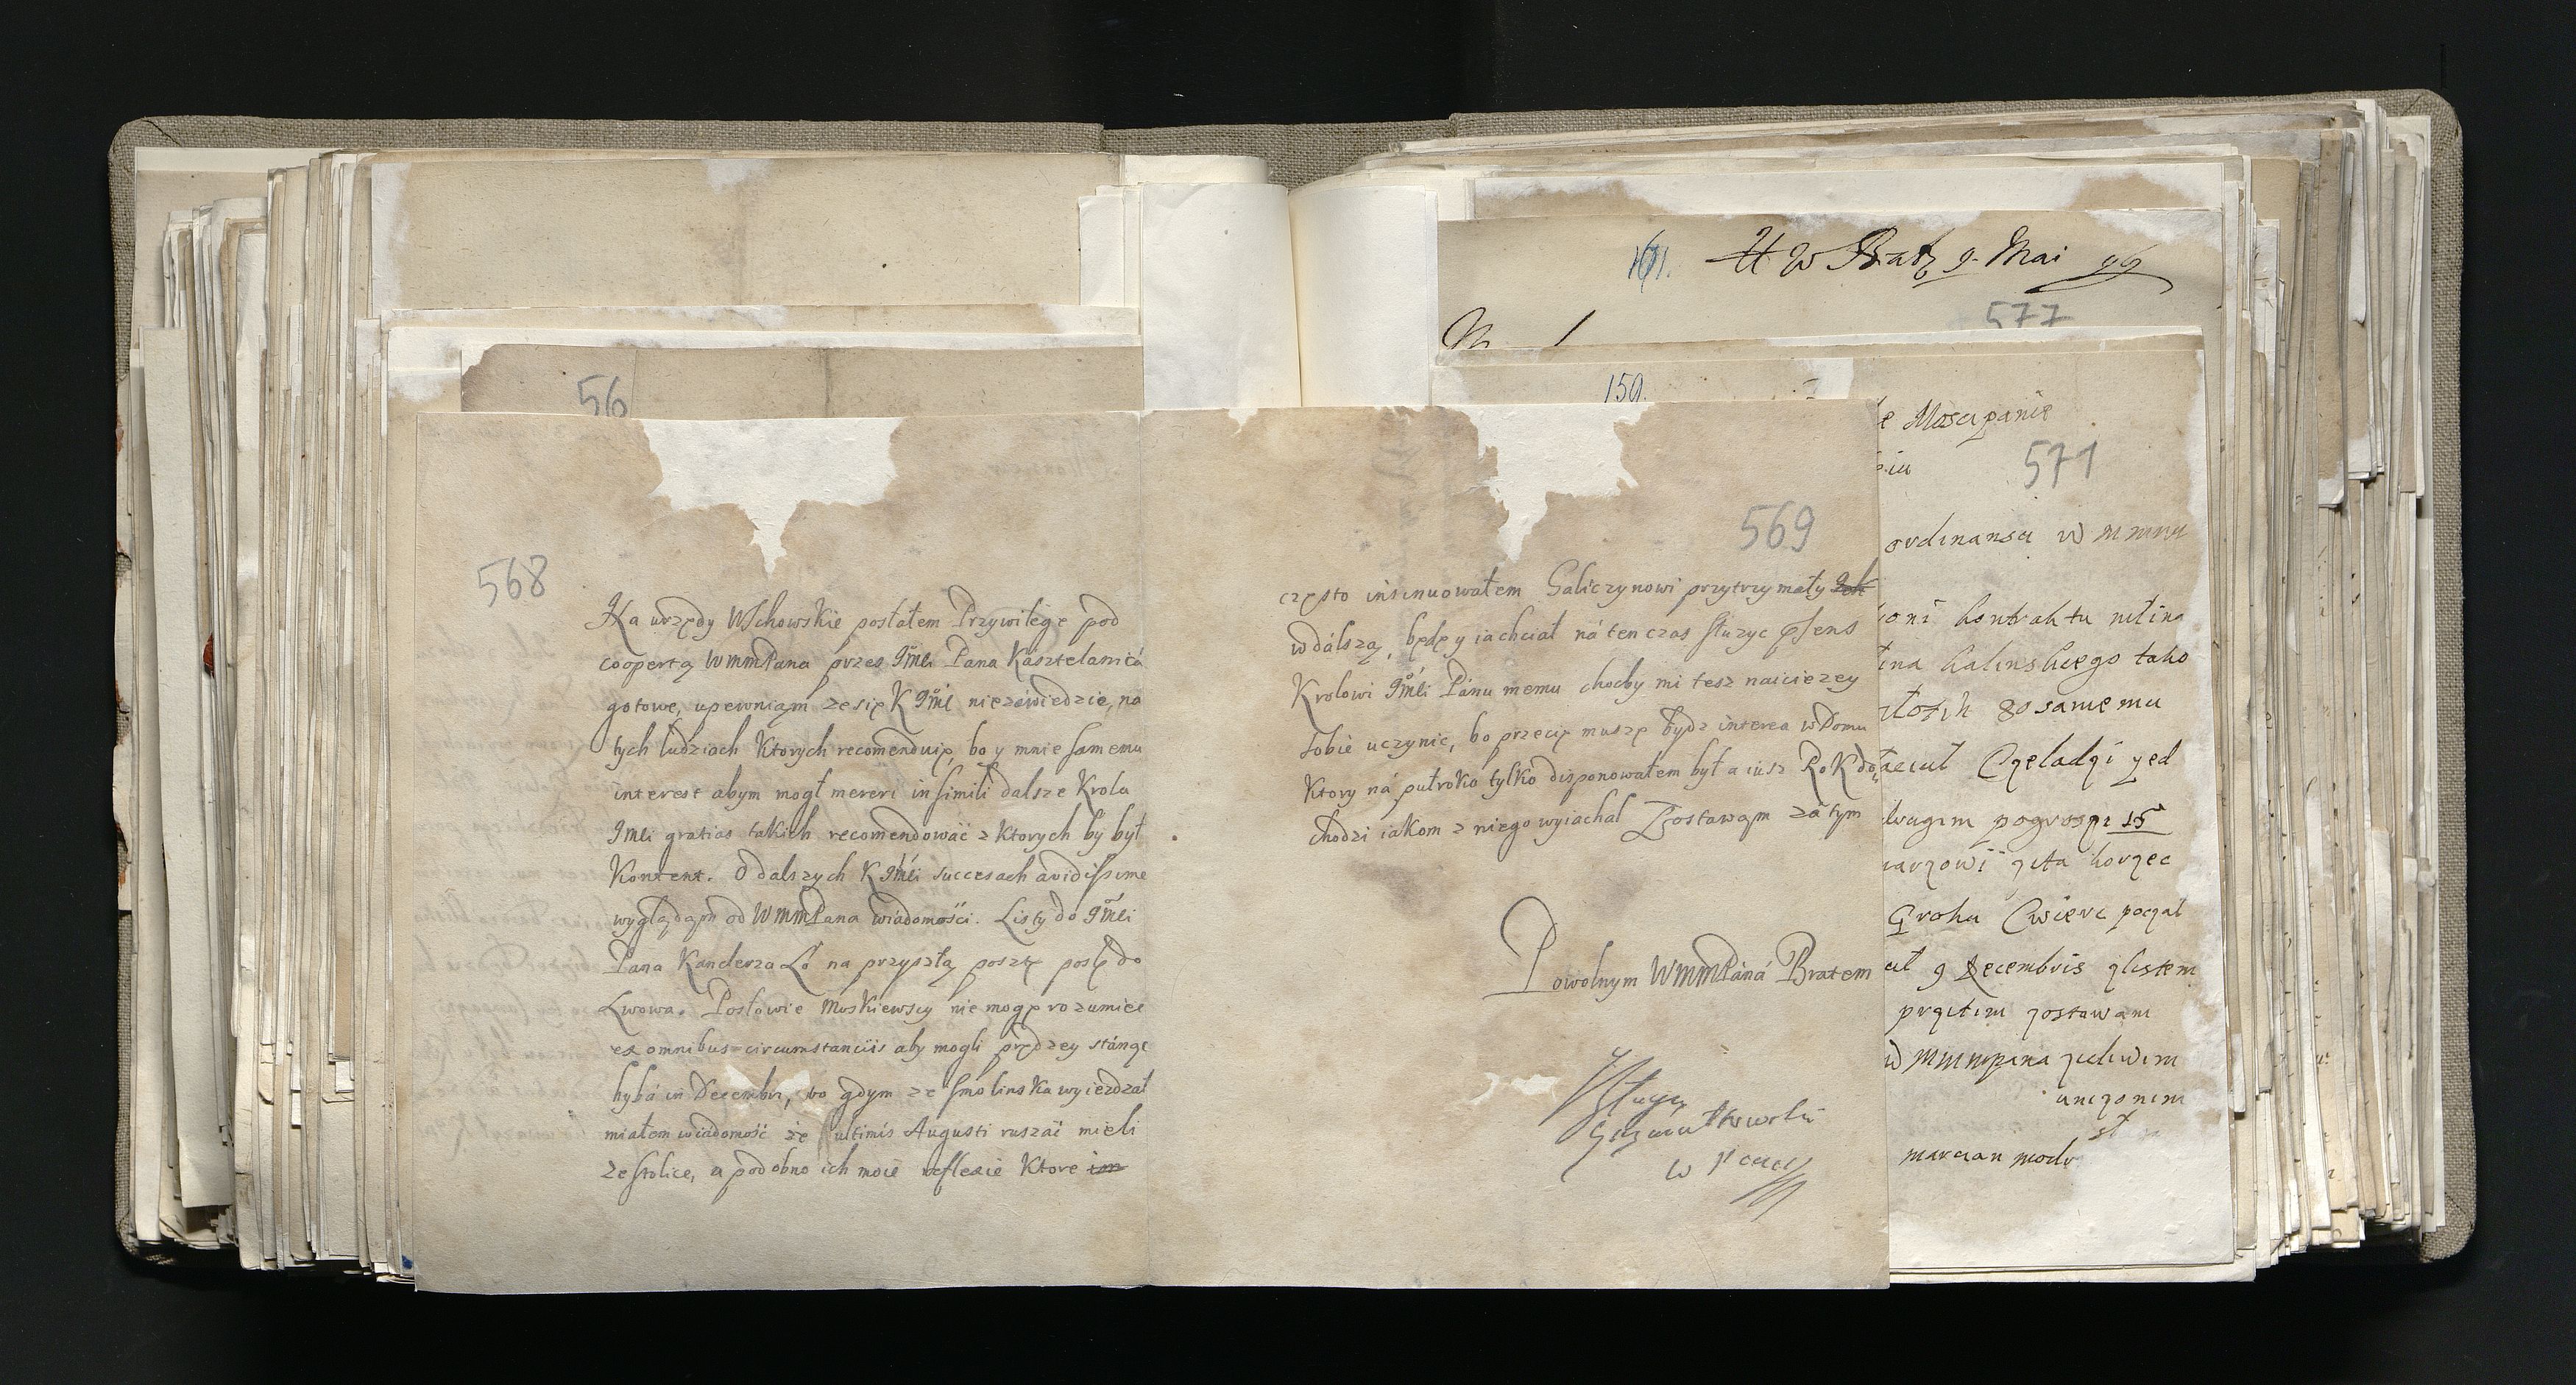 56
568
Na urzędy WSchowskie posłałem Przywilege pod
coopertą WMMPana przes JMci Pana Kásztelanicá
gotowe, upewniąm ze się K JMć niezáwiedzie, na
tych ludziach Ktorych recomenduię, bo y mnie samemu
interest abym mogł mereri in simili dalsze Krola
JMci gratias takich recomendować z Ktorych by był
Kontent. O dalszych K JMći succesach avidissime
wyglądąm od WMMPana wiadomośći. Listy do JMći
Pana Kanclerza Lo na przyszłą posztę poslę do
Lwowa. Posłowie Moskiewscy nie mogę rozumiec
ex omnibus circumstanciis aby mogli prędzey stánąc
hybá in Decembri, bo gdym ze Smolinska wyiezdzał
miałem wiádomość że ultimis Augusti ruszać mieli
ze stolice, a podobno ich moie reflexie Ktore
569
często insinuowałem Galiczynowi przytrzymały
wdálszą, będę y ia chciał ná ten czas słuzyc
Krolowi JMći Pánu memu choćby mi tesz naiciezey
sobie uczynic, bo przecię muszę bydz interea w Domu
Ktory ná pułroko tylko disponowałem był a iusz RoK do
chodzi iakom z niego wyiachal Zostawąm zátym
Powolnym WMMPáná Bratem
y Sługą
161. W 9. Mai 99
577
150.
e Moscipanie
571
ordinansu W M M
oni kontraktu
ina kalinskiego tako
80 samemu
Czeladzi zed
pogroszi 15
arzowi zita korzec
Grohu Cwierc poczal
9 Decembris zlistem
przitim zostawam
W M M mpana zicliwim
unizonim
st
marcian modr